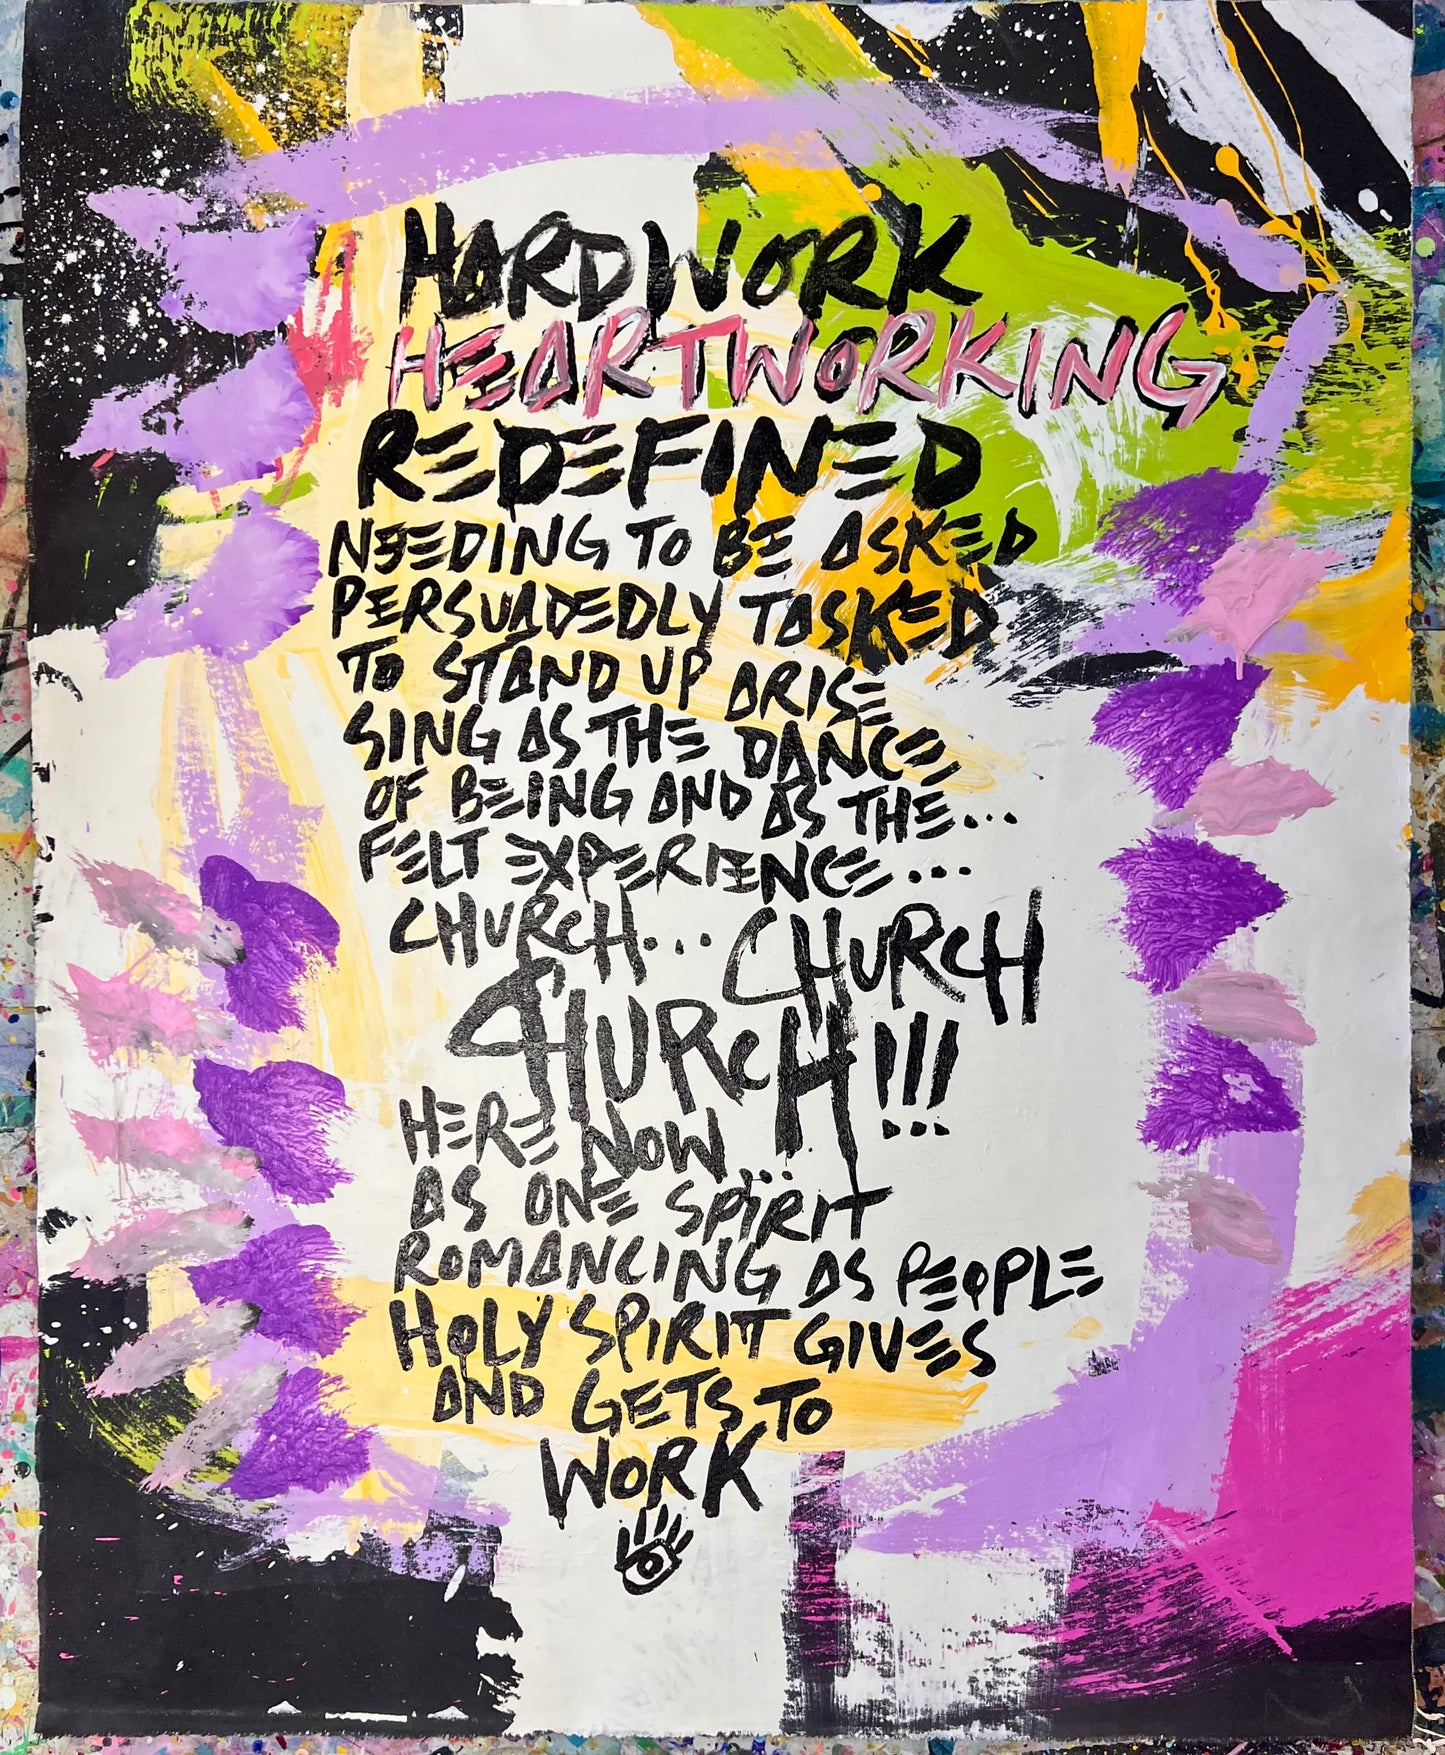 HARDWORK
HEARTWORKING
REDEFINED
NEEDING TO BE ASKED
PERSUADEDLY TASKED
TO STAND UP ARISE
SING AS THE DANCE
OF BEING AND AS THE...
FELT EXPERIENCE...
CHURCH... CHURCH
CHURCH!!!
HERE NOW...
AS ONE SPIRIT
ROMANCING AS PEOPLE
HOLY SPIRIT GIVES
AND GETS TO
WORK